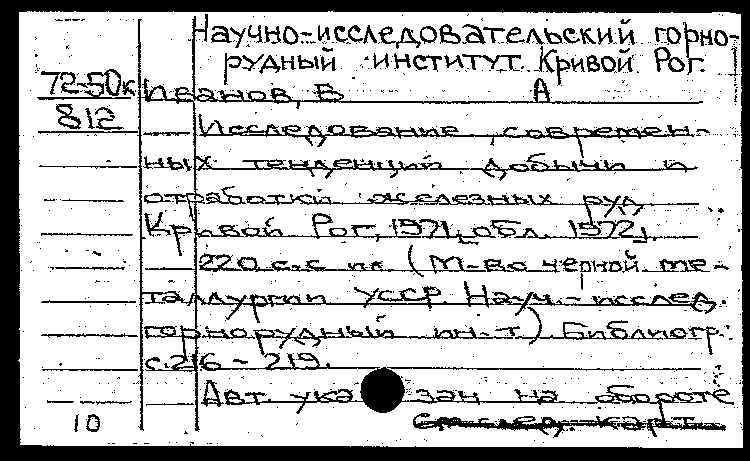 Научно-исследовательский горно-
рудный институт. Кривой Рог.
72-50к Иванов, В А
812 Исследование современ-
ных тенденций добычи и
отработки железных руд.
Кривой Рог, 1971, [обл. 1972].
220 с. с ил. (М-во черной ме-
таллургии УССР. Науч.-исслед.
горнорудный ин-т) Библиогр.:
с. 216-219.
Авт. указан на обороте
10 См след. карт.